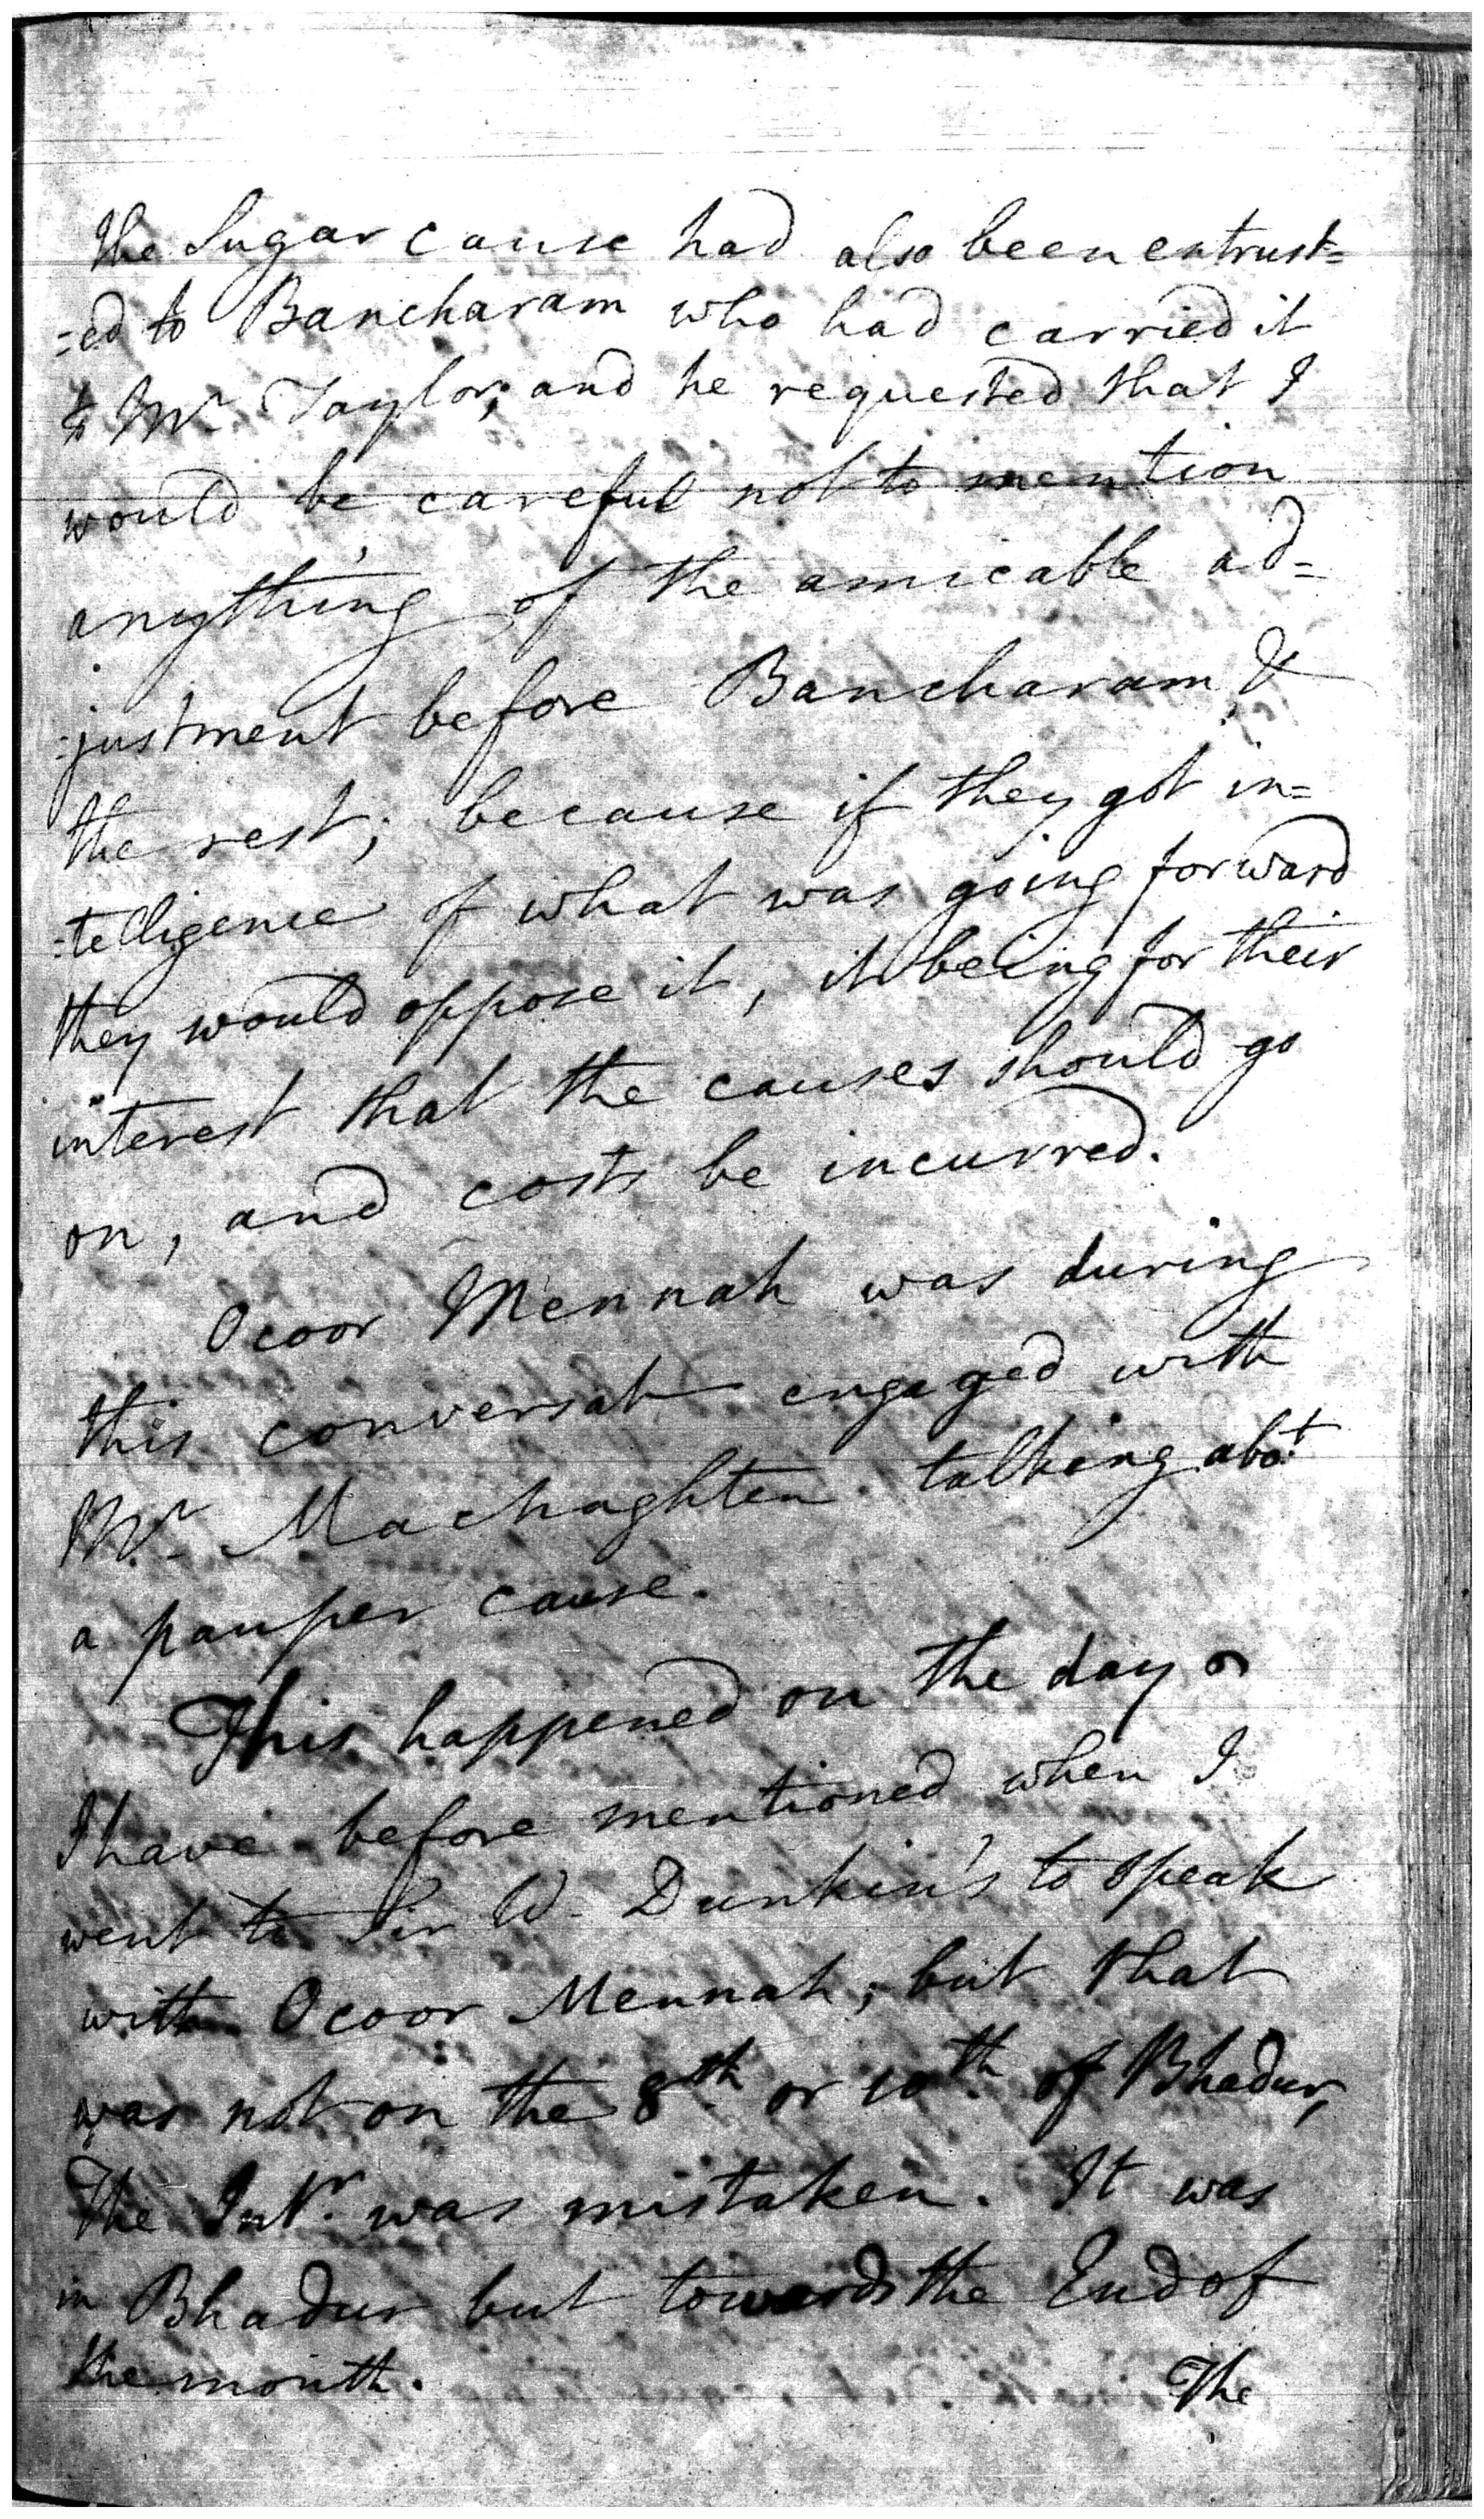 the Sugar cause had also been entrust=
=ed to Bancharam who had carried it
to Mr Taylor; and he requested that I
would be careful not to mention
anything of the amicable ad=
=justment before Bancharam, &
the rest; because if they got in=
=telligence of what was going forward
they would oppose it, it being for their
interest that the causes should go
on, and costs be incurred.
Ocoor Mennah was during
this conversat engaged with
Mr. Machaghten talking abot
a pauper cause.
This happened on the day
I have before mentioned when I
went to Sir W. Dunkin's to speak
with Ocoor Mennah; but that
was not on the 8th or 10th of Bhadur,
The Intr. was mistaken. It was
in Bhadur but towards the End of
the month.
The